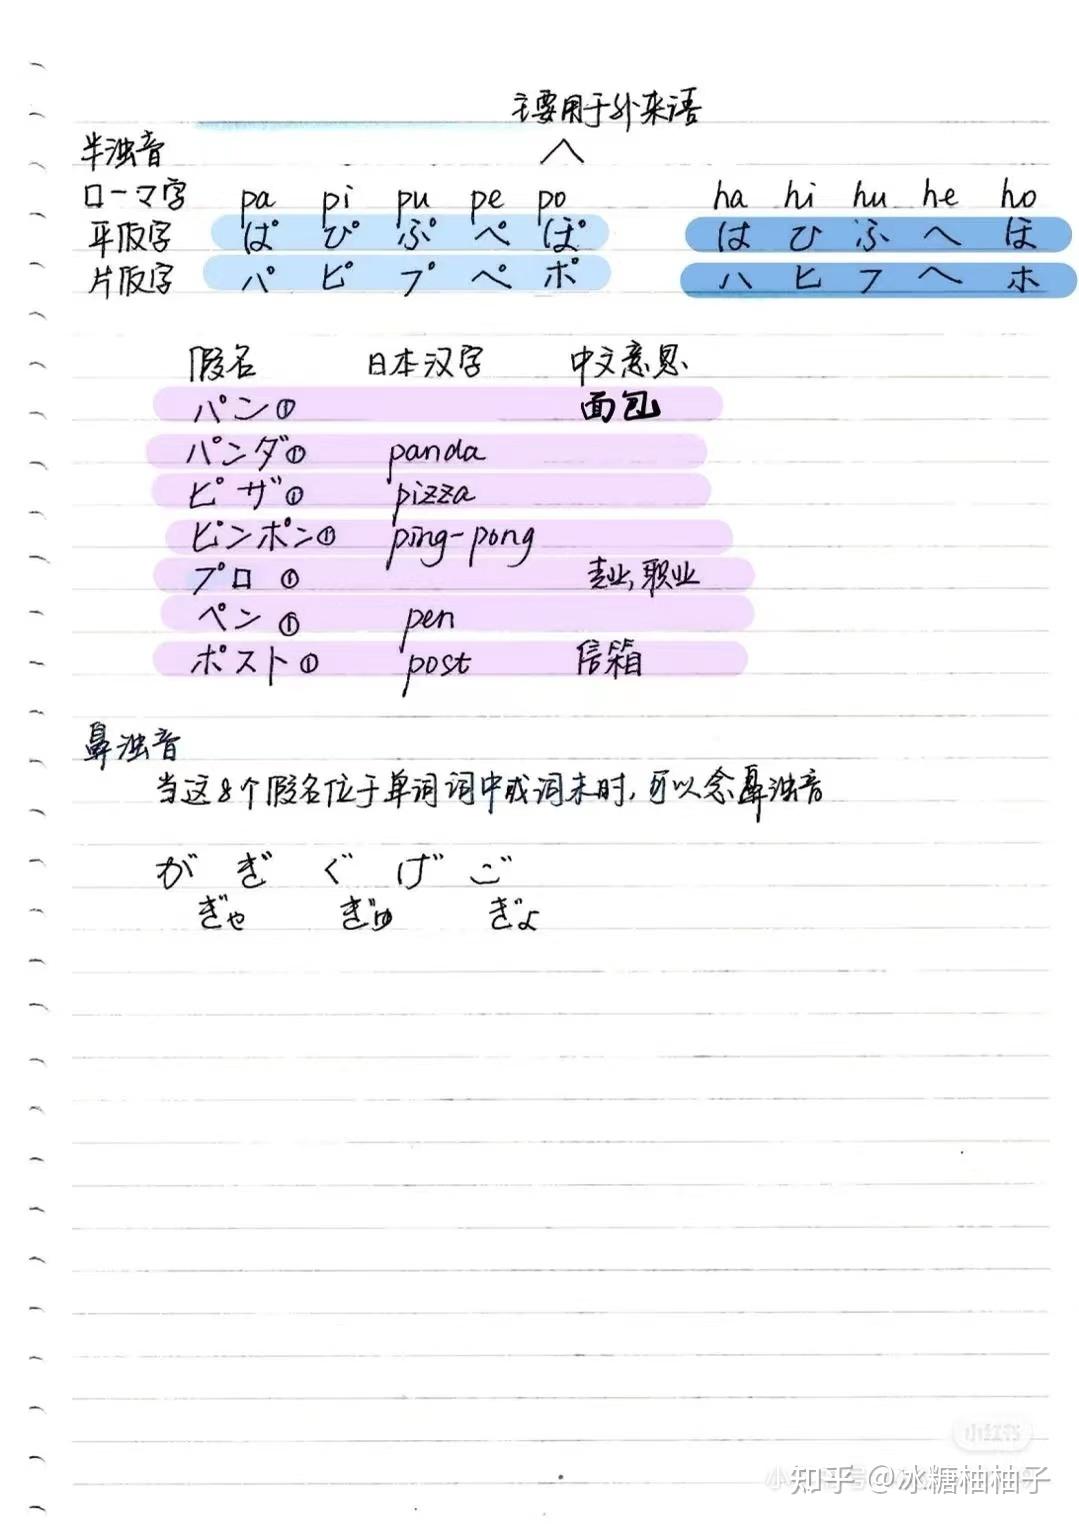 主要用于外来语
半浊音
ローマ字 pa pi pu pe po ha hi hu he ho
平仮字 ぱ ぴ ぷ ぺ ぽ は ひ ふ へ ほ
片仮字 パ ピ プ ペ ポ ハ ヒ フ ヘ ホ
假名 日本汉字 中文意思
パン① 面包
パンダ① panda
ピザ① pizza
ピンポン① ping-pong
プロ① 专业,职业
ペン① pen
ポスト① post 信箱
鼻浊音
当这8个假名位于单词词中或词末时,可以念鼻浊音
が ぎ ぐ げ ご
ぎゃ ぎゅ ぎょ
小红书
知乎 @冰糖柚柚子